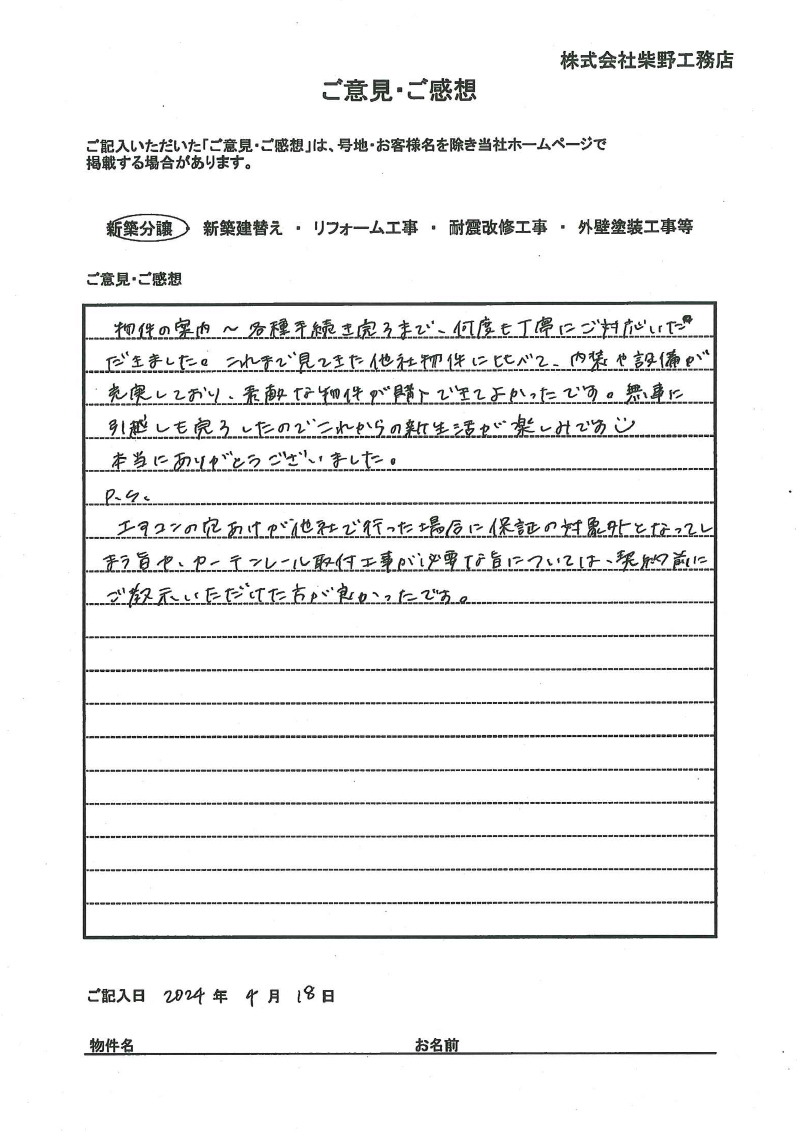 株式会社柴野工務店
ご意見・ご感想
ご記入いただいた「ご意見・ご感想」は、号地・お客様名を除き当社ホームページで
掲載する場合があります。
新築分譲 ・ 新築建替え ・ リフォーム工事 ・ 耐震改修工事 ・ 外壁塗装工事等
ご意見・ご感想
物件の案内～各種手続き完了まで、何度も丁寧にご対応いた
だきました。これまで見てきた他社物件に比べて、内装や設備が
充実しており、素敵な物件が購入できてよかったです。無事に
引越しも完了したのでこれからの新生活が楽しみです
本当にありがとうございました。
P.S.
エアコンの穴あけが他社で行った場合に保証の対象外となってし
まう旨や、カーテンレール取付工事が必要な旨については、契約前に
ご教示いただけた方が良かったです。
ご記入日 2024 年 4 月 18 日
物件名 お名前